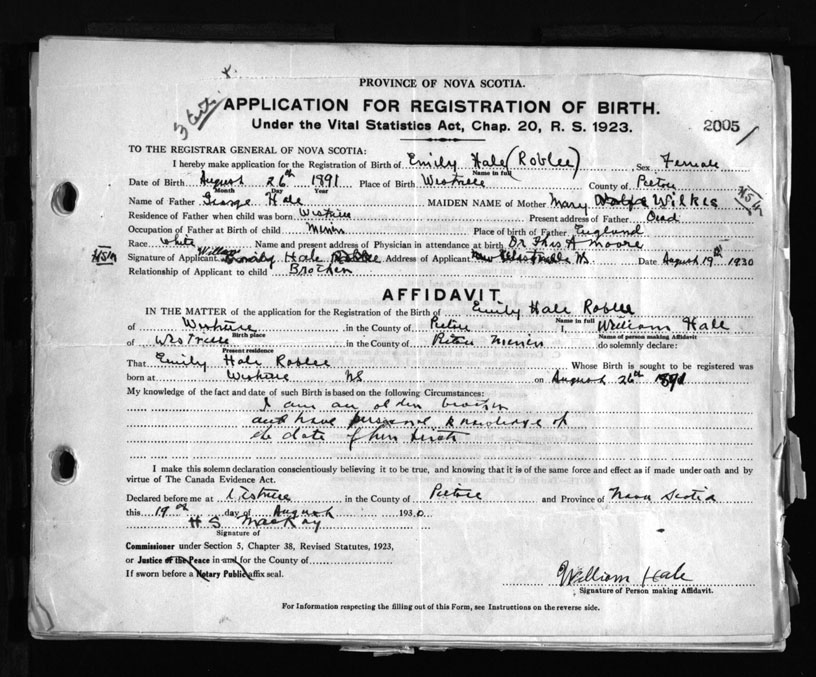 PROVINCE OF NOVA SCOTIA.
APPLICATION FOR REGISTRATION OF BIRTH.
Under the Vital Statistics Act, Chap. 20, R. S. 1923.
2005
TO THE REGISTRAR GENERAL OF NOVA SCOTIA:
I hereby make application for the Registration of Birth of Emily Hale (Roblee), Sex Female
Name in full
Date of Birth August 26th 1891 Place of Birth Westville County of Pictou
Month Day Year
Name of Father George Hale MAIDEN NAME of Mother Mary Wilkes
Residence of Father when child was born Westville Present address of Father Dead
Occupation of Father at Birth of child Miner Place of birth of Father England
Race White Name and present address of Physician in attendance at birth Dr Thos A Moore
HSM Signature of Applicant William Hale Address of Applicant Date August 19th 1930
Relationship of Applicant to child Brother
AFFIDAVIT
IN THE MATTER of the application for the Registration of the Birth of Emily Hale Roblee
Name in full
of Westville in the County of Pictou I, William Hale
Birth place Name of person making Affidavit
of Westville in the County of Pictou Miner do solemnly declare:
Present residence
That Emily Hale Roblee Whose Birth is sought to be registered was
born at Westville NS on August 26th 1891
My knowledge of the fact and date of such Birth is based on the following Circumstances:
I am an older brother
and have personal knowledge of
the date of her birth
I make this solemn declaration conscientiously believing it to be true, and knowing that it is of the same force and effect as if made under oath and by
virtue of The Canada Evidence Act.
Declared before me at Westville in the County of Pictou and Province of Nova Scotia
this 19th day of August 1930
H S MacKay
Signature of
Commissioner under Section 5, Chapter 38, Revised Statutes, 1923,
or Justice of the Peace in and for the County of
If sworn before a Notary Public affix seal.
William Hale
Signature of Person making Affidavit.
For Information respecting the filling out of this Form, see Instructions on the reverse side.